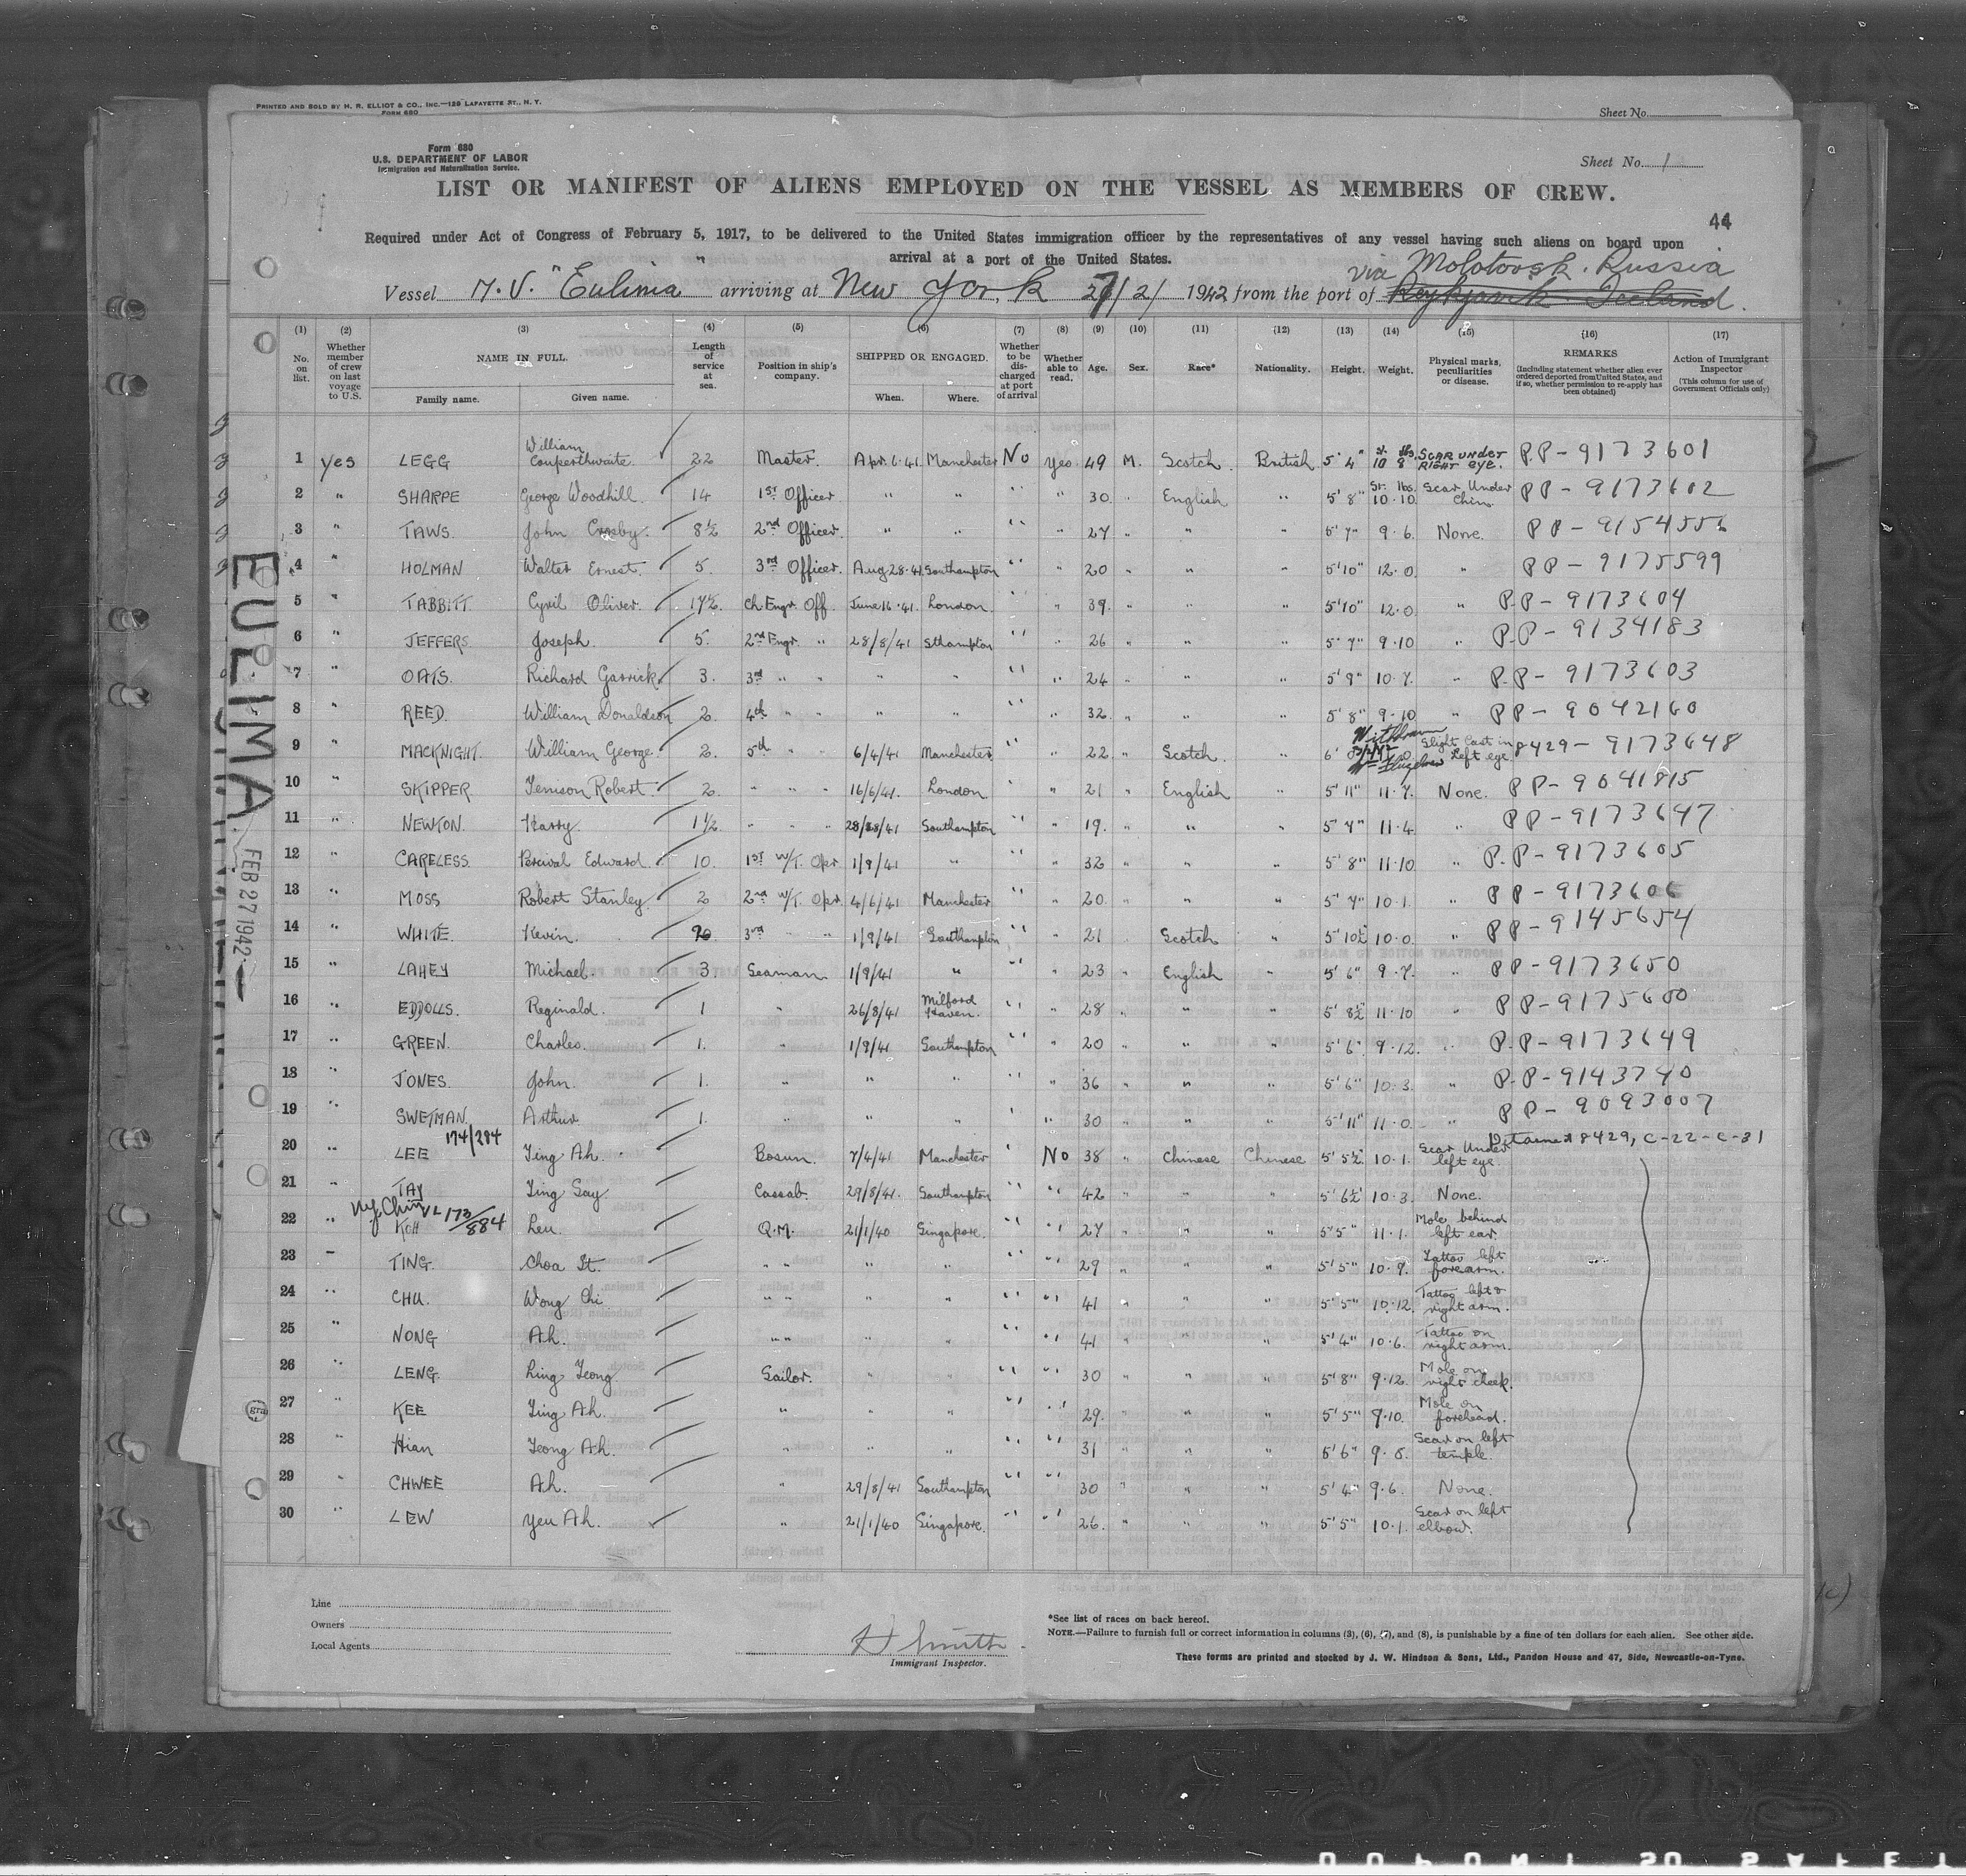 PRINTED AND SOLD BY H. R. ELLIOT & CO., INC.—129 LAFAYETTE ST., N. Y.
FORM 680
Sheet No.
Form 680
U.S. DEPARTMENT OF LABOR
Immigration and Naturalization Service.
Sheet No. 1
LIST OR MANIFEST OF ALIENS EMPLOYED ON THE VESSEL AS MEMBERS OF CREW.
44
Required under Act of Congress of February 5, 1917, to be delivered to the United States immigration officer by the representatives of any vessel having such aliens on board upon
arrival at a port of the United States.
via Molotovsk. Russia
Vessel M.V. "Eulima" arriving at New York 27/2/ 1942 from the port of Reykjavik Iceland.
(1) (2) (3) (4) (5) (6) (7) (8) (9) (10) (11) (12) (13) (14) (15) (16) (17)
No. on list. Whether member of crew on last voyage to U.S. NAME IN FULL. Family name. Given name. Length of service at sea. Position in ship's company. SHIPPED OR ENGAGED. When. Where. Whether to be discharged at port of arrival Whether able to read. Age. Sex. Race* Nationality. Height. Weight. Physical marks, peculiarities or disease. REMARKS (Including statement whether alien ever ordered deported from United States, and if so, whether permission to re-apply has been obtained) Action of Immigrant Inspector (This column for use of Government Officials only)
1 yes LEGG William Couperthwaite. 22 Master. Apr. 6. 41. Manchester No Yes. 49 M. Scotch. British. 5' 4" st. lbs. 10 8 SCAR UNDER RIGHT eye. P.P - 9173601
2 " SHARPE George Woodhill. 14 1st Officer " " " " 30. " English " 5' 8" St. lbs. 10.10. Scar Under Chin. PP - 9173602
3 " TAWS. John Crosby. 8½ 2nd Officer. " " " " 27 " " " 5' 7" 9.6. None. PP - 9154556
4 " HOLMAN Walter Ernest. 5. 3rd Officer. Aug 28.41. Southampton " " 20 " " " 5'10" 12.0. " PP - 9175599
5 " TABBITT. Cyril Oliver. 17½. Ch Engr. Off. June 16.41. London. " " 39. " " " 5'10" 12.0. " P.P - 9173604
6 " JEFFERS. Joseph. 5. 2nd Engr. " 28/8/41 Sthampton " " 26 " " " 5' 7" 9.10 " P.P - 9134183
7 " OATS. Richard Garrick. 3. 3rd " " " " " " 24 " " " 5' 9" 10.7. " P.P - 9173603
8 " REED. William Donaldson 2. 4th " " " " " " 32. " " " 5' 8" 9.10 " PP - 9042160
9 " MACKNIGHT. William George. 2. 5th " " 6/4/41 Manchester " " 22. " Scotch. " 6' Withdrawn Slight Cast in Left eye. 8429 - 9173648
10 " SKIPPER Tenison Robert. 2. " " " 16/6/41. London. " " 21 " English " 5' 11" 11.7. None. PP - 9041815
11 " NEWTON. Harry. 1½. " " " 28/8/41 Southampton " " 19. " " " 5' 7" 11.4. " PP - 9173647
12 " CARELESS. Percival Edward. 10. 1st W/T. Opr 1/9/41 " " " 32 " " " 5' 8" 11.10 " P.P - 9173605
13 " MOSS Robert Stanley. 2 2nd W/T. Opr. 4/6/41 Manchester " " 20. " " " 5' 7" 10.1. " PP - 9173606
14 " WHITE. Kevin. 3rd " " 1/9/41 Southampton " " 21 " Scotch " 5' 10½ 10.0. " PP - 9145654
15 " LAHEY Michael. 3. Seaman 1/9/41 " " " 23 " English " 5' 6" 9.7. " PP - 9173650
16 " EDDOLLS. Reginald. 1 " 26/8/41 Milford Haven. " " 28 " " " 5' 8½ 11.10 " PP - 9175600
17 " GREEN. Charles. 1. " 1/9/41 Southampton " " 20 " " " 5' 6" 9.12. " P.P - 9173649
18 " JONES. John. 1. " " " " " 36 " " " 5' 6" 10.3. " P.P - 9143740
19 " SWETMAN. Arthur 1. " " " " " 30 " " " 5' 11" 11.0. " PP - 9093007
174/284 Detained 8429, C-22-C-31
20 " LEE Ting Ah. Bosun. 7/4/41 Manchester " No 38 " Chinese Chinese 5' 5½ 10.1. Scar Under left eye.
21 " TAY Ting Say Cassab. 29/8/41. Southampton " " 42 " " " 5' 6½ 10.3. None.
173/884
22 " KOH Leu. Q.M. 21/1/40 Singapore. " " 27 " " " 5' 5" 11.1. Mole behind left ear.
23 " TING. Choa St. " " " " " " 29 " " " 5' 5" 10.7. Tattoo left forearm.
24 " CHU. Wong Chi " " " " " " 41 " " " 5' 5" 10.12. Tattoo left & right arm.
25 " NONG Ah. " " " " " " 41 " " " 5' 4" 10.6. Tattoo on right arm.
26 " LENG. Ling Teong. Sailor. " " " " 30 " " " 5' 8" 9.12. Mole on right cheek.
27 " KEE Ting Ah. " " " " " 29. " " " 5' 5" 9.10. Mole on forehead.
28 " Hian Teong Ah. " " " " " 31 " " " 5' 6" 9.8. Scar on left temple.
29 " CHWEE Ah. " 29/8/41 Southampton " " 30 " " " 5' 4" 9.6. None.
30 " LEW Yeu Ah. " 21/1/40 Singapore. " " 26. " " " 5' 5" 10.1. Scar on left elbow.
EULIMA
FEB 27 1942
Line
Owners
Local Agents
H Smith
Immigrant Inspector.
*See list of races on back hereof.
NOTE.—Failure to furnish full or correct information in columns (3), (6), (7), and (8), is punishable by a fine of ten dollars for each alien. See other side.
These forms are printed and stocked by J. W. Hindson & Sons, Ltd., Pandon House and 47, Side, Newcastle-on-Tyne.